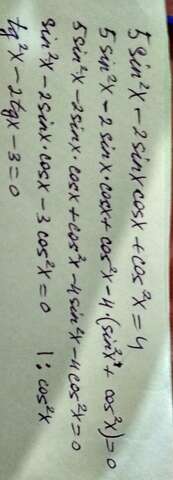 5sin²x - 2sinx·cosx + cos²x = 4
5sin²x - 2sinx·cosx + cos²x - 4·(sin²x + cos²x) = 0
5sin²x - 2sinx·cosx + cos²x - 4sin²x - 4cos²x = 0
sin²x - 2sinx·cosx - 3cos²x = 0 | : cos²x
tg²x - 2tgx - 3 = 0